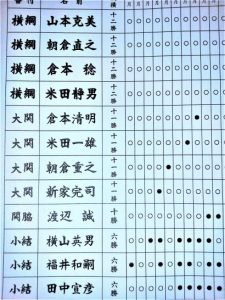 横綱 山本克美 十二勝
横綱 朝倉直之 十二勝
横綱 倉本 稔 十二勝
横綱 米田静男 十二勝
大関 倉本清明 十一勝
大関 米田一雄 十一勝
大関 朝倉重之 十一勝
大関 新家完司 十一勝
関脇 渡辺 誠 十勝
小結 横山英男 六勝
小結 福井和嗣 六勝
小結 田中宜彦 六勝